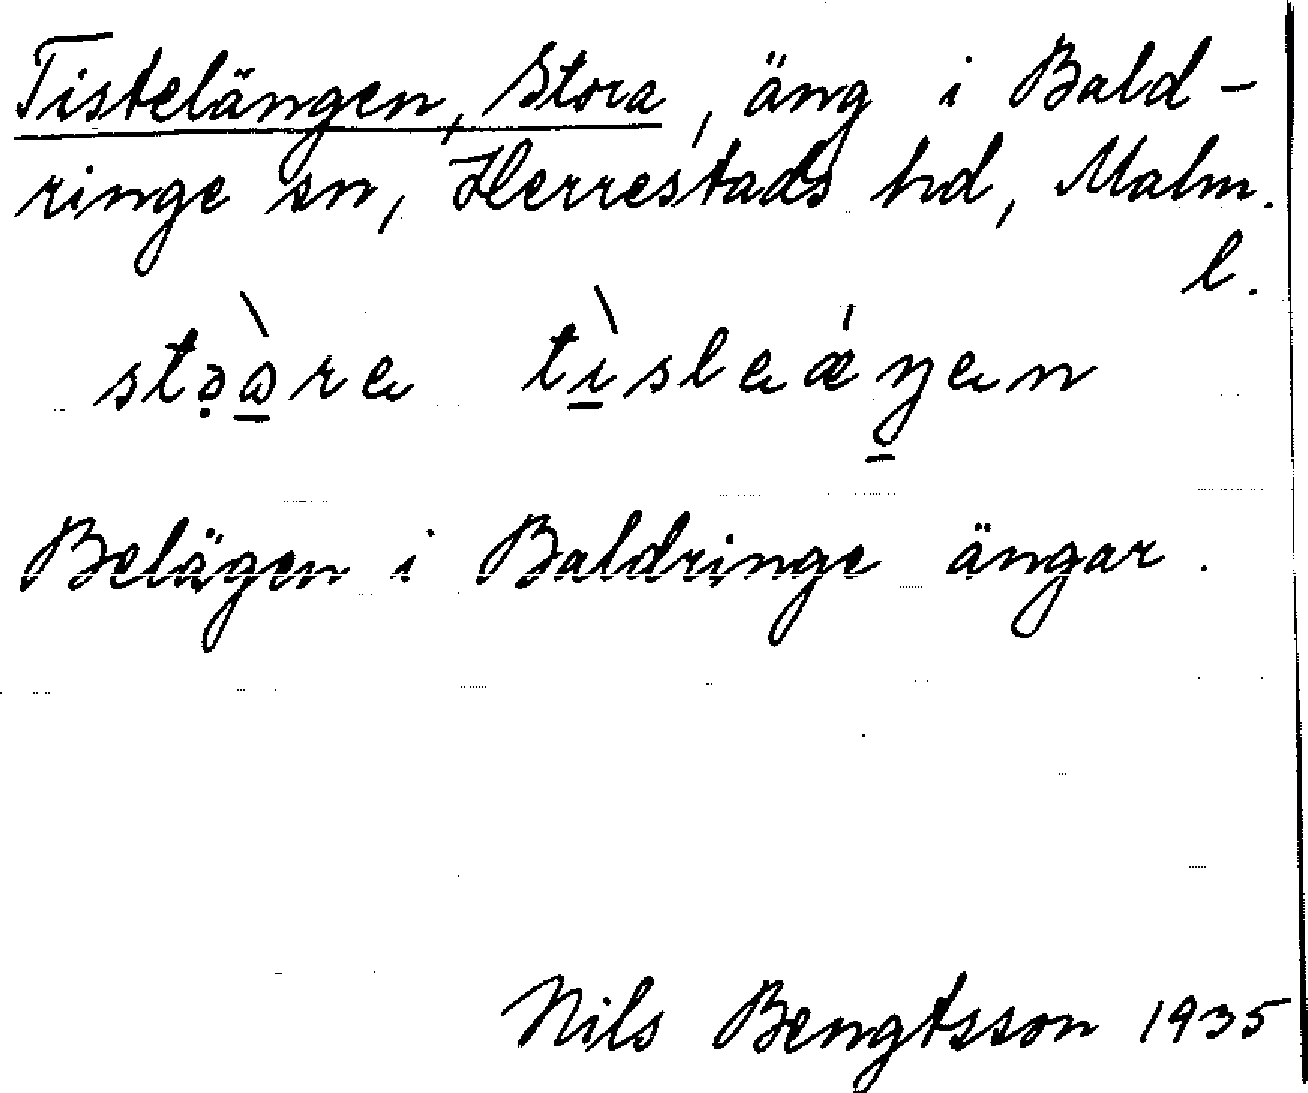 Tistelängen, Stora, äng i Bald-
ringe sn, Herrestads hd, Malm.
l.
Belägen i Baldringe ängar.
Nils Bengtsson 1935